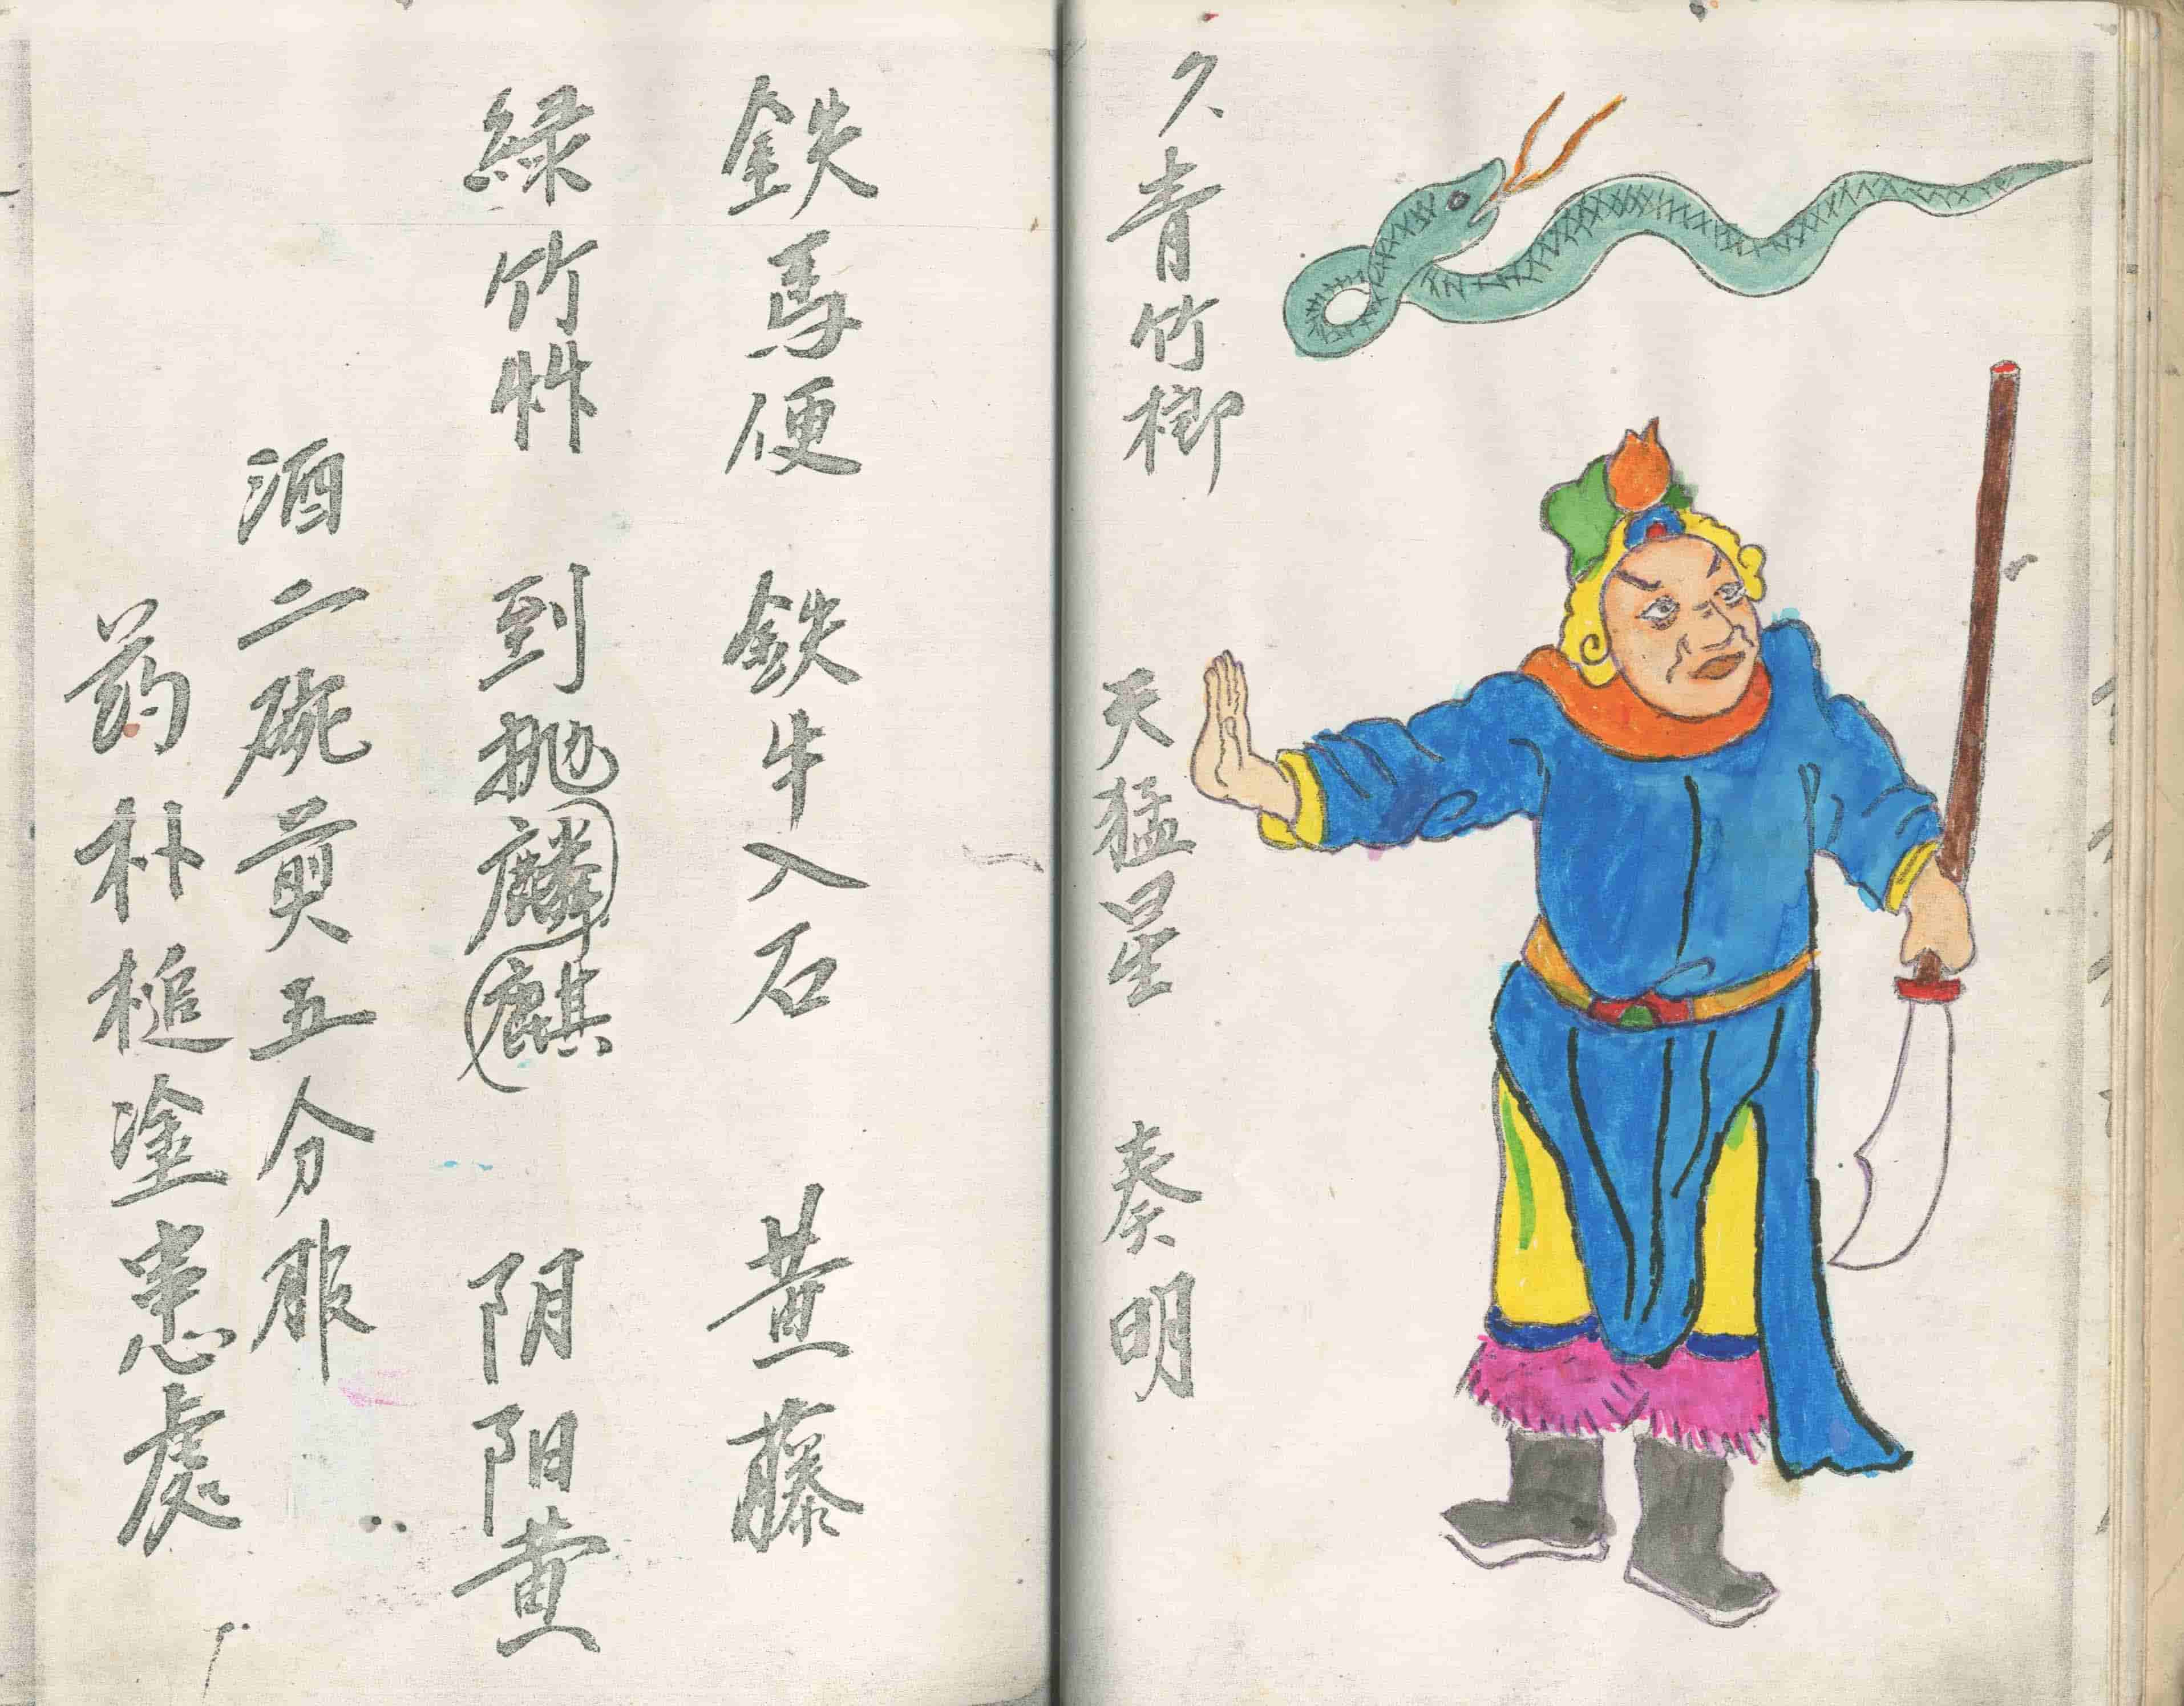 久青竹榔
天猛星 秦明
鉄馬便 鉄牛入石 黄藤
緑竹艸 到抛麟麒 阴阳黄
酒二碗煎五分服
药朴槌塗患處